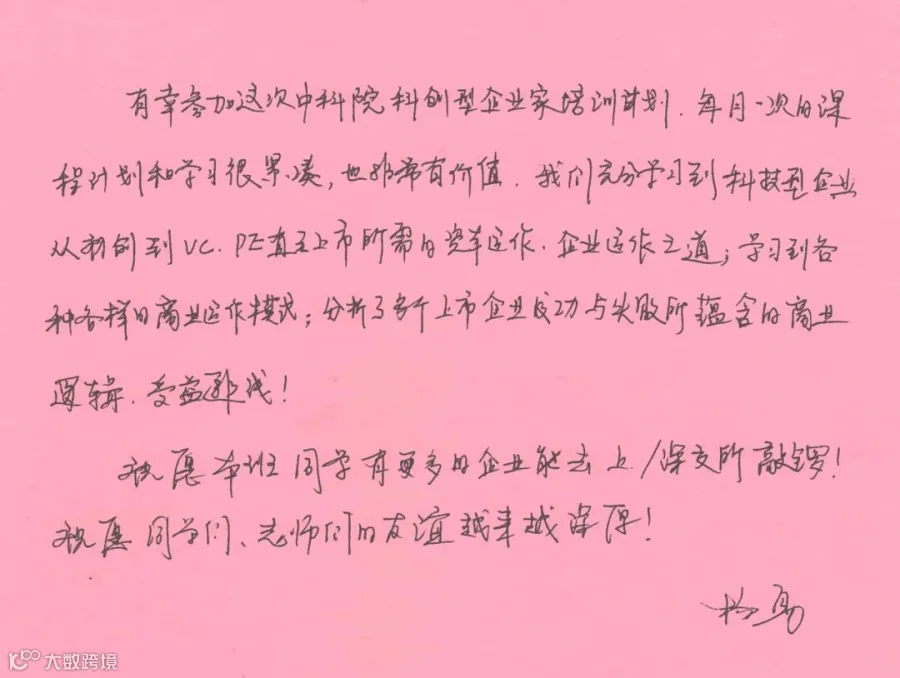 有幸参加这次中科院科创型企业家培训计划.每月一次的课
程计划和学习很紧凑,也非常有价值.我们充分学习到科技型企业
从初创到VC.PE直至上市所需的资本运作.企业运作之道;学习到各
种各样的商业运作模式;分析了多个上市企业成功与失败所蕴含的商业
逻辑.受益匪浅!
祝愿本班同学有更多的企业能去上/深交所敲锣!
祝愿同学们、老师们的友谊越来越深厚!
大数跨境